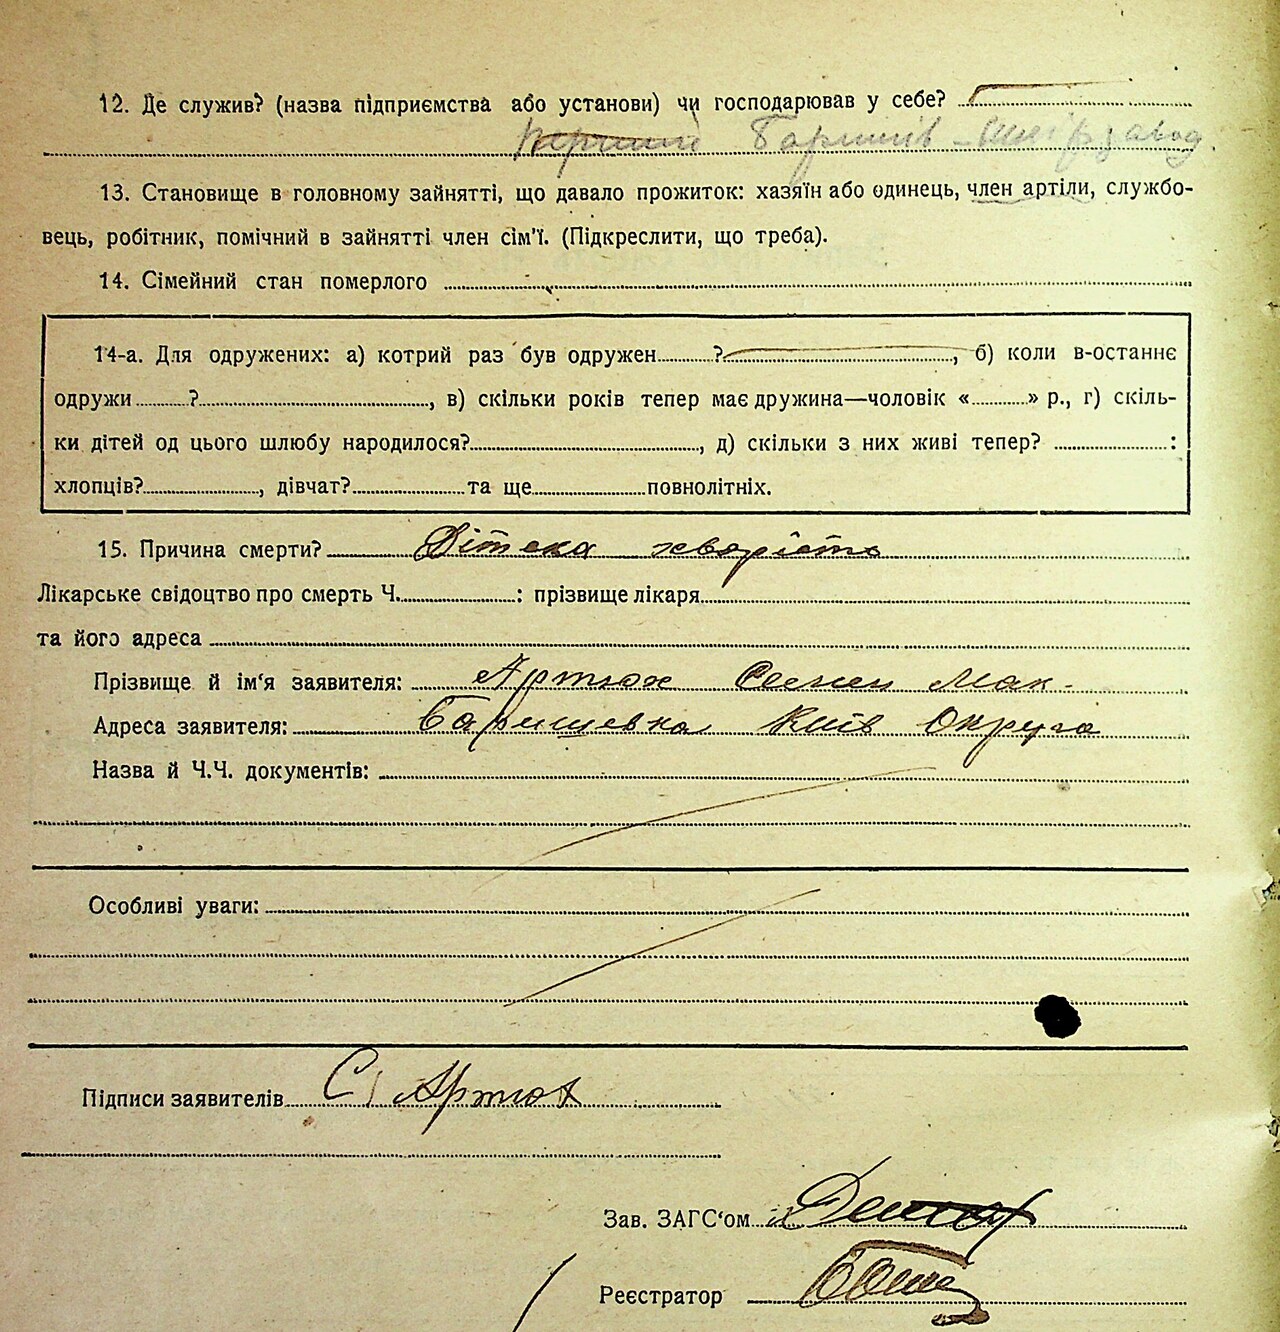 12. Де служив? (назва підприємства або установи) чи господарював у себе?
Баришів - Шкірзавод
13. Становище в головному зайнятті, що давало прожиток: хазяїн або одинець, член артіли, службо-
вець, робітник, помічний в зайнятті член сім'ї. (Підкреслити, що треба).
14. Сімейний стан померлого
14-а. Для одружених: а) котрий раз був одружен ?, б) коли в-останнє
одружи ?, в) скільки років тепер має дружина—чоловік « » р., г) скіль-
ки дітей од цього шлюбу народилося?, д) скільки з них живі тепер? :
хлопців?, дівчат? та ще повнолітніх.
15. Причина смерти? Дітска хворість
Лікарське свідоцтво про смерть Ч. : прізвище лікаря
та його адреса
Прізвище й ім'я заявителя: Артюх Семен Мак-
Адреса заявителя: Баришевка Київ Округа
Назва й Ч.Ч. документів:
Особливі уваги:
Підписи заявителів С Артюх
Зав. ЗАГС'ом
Реєстратор